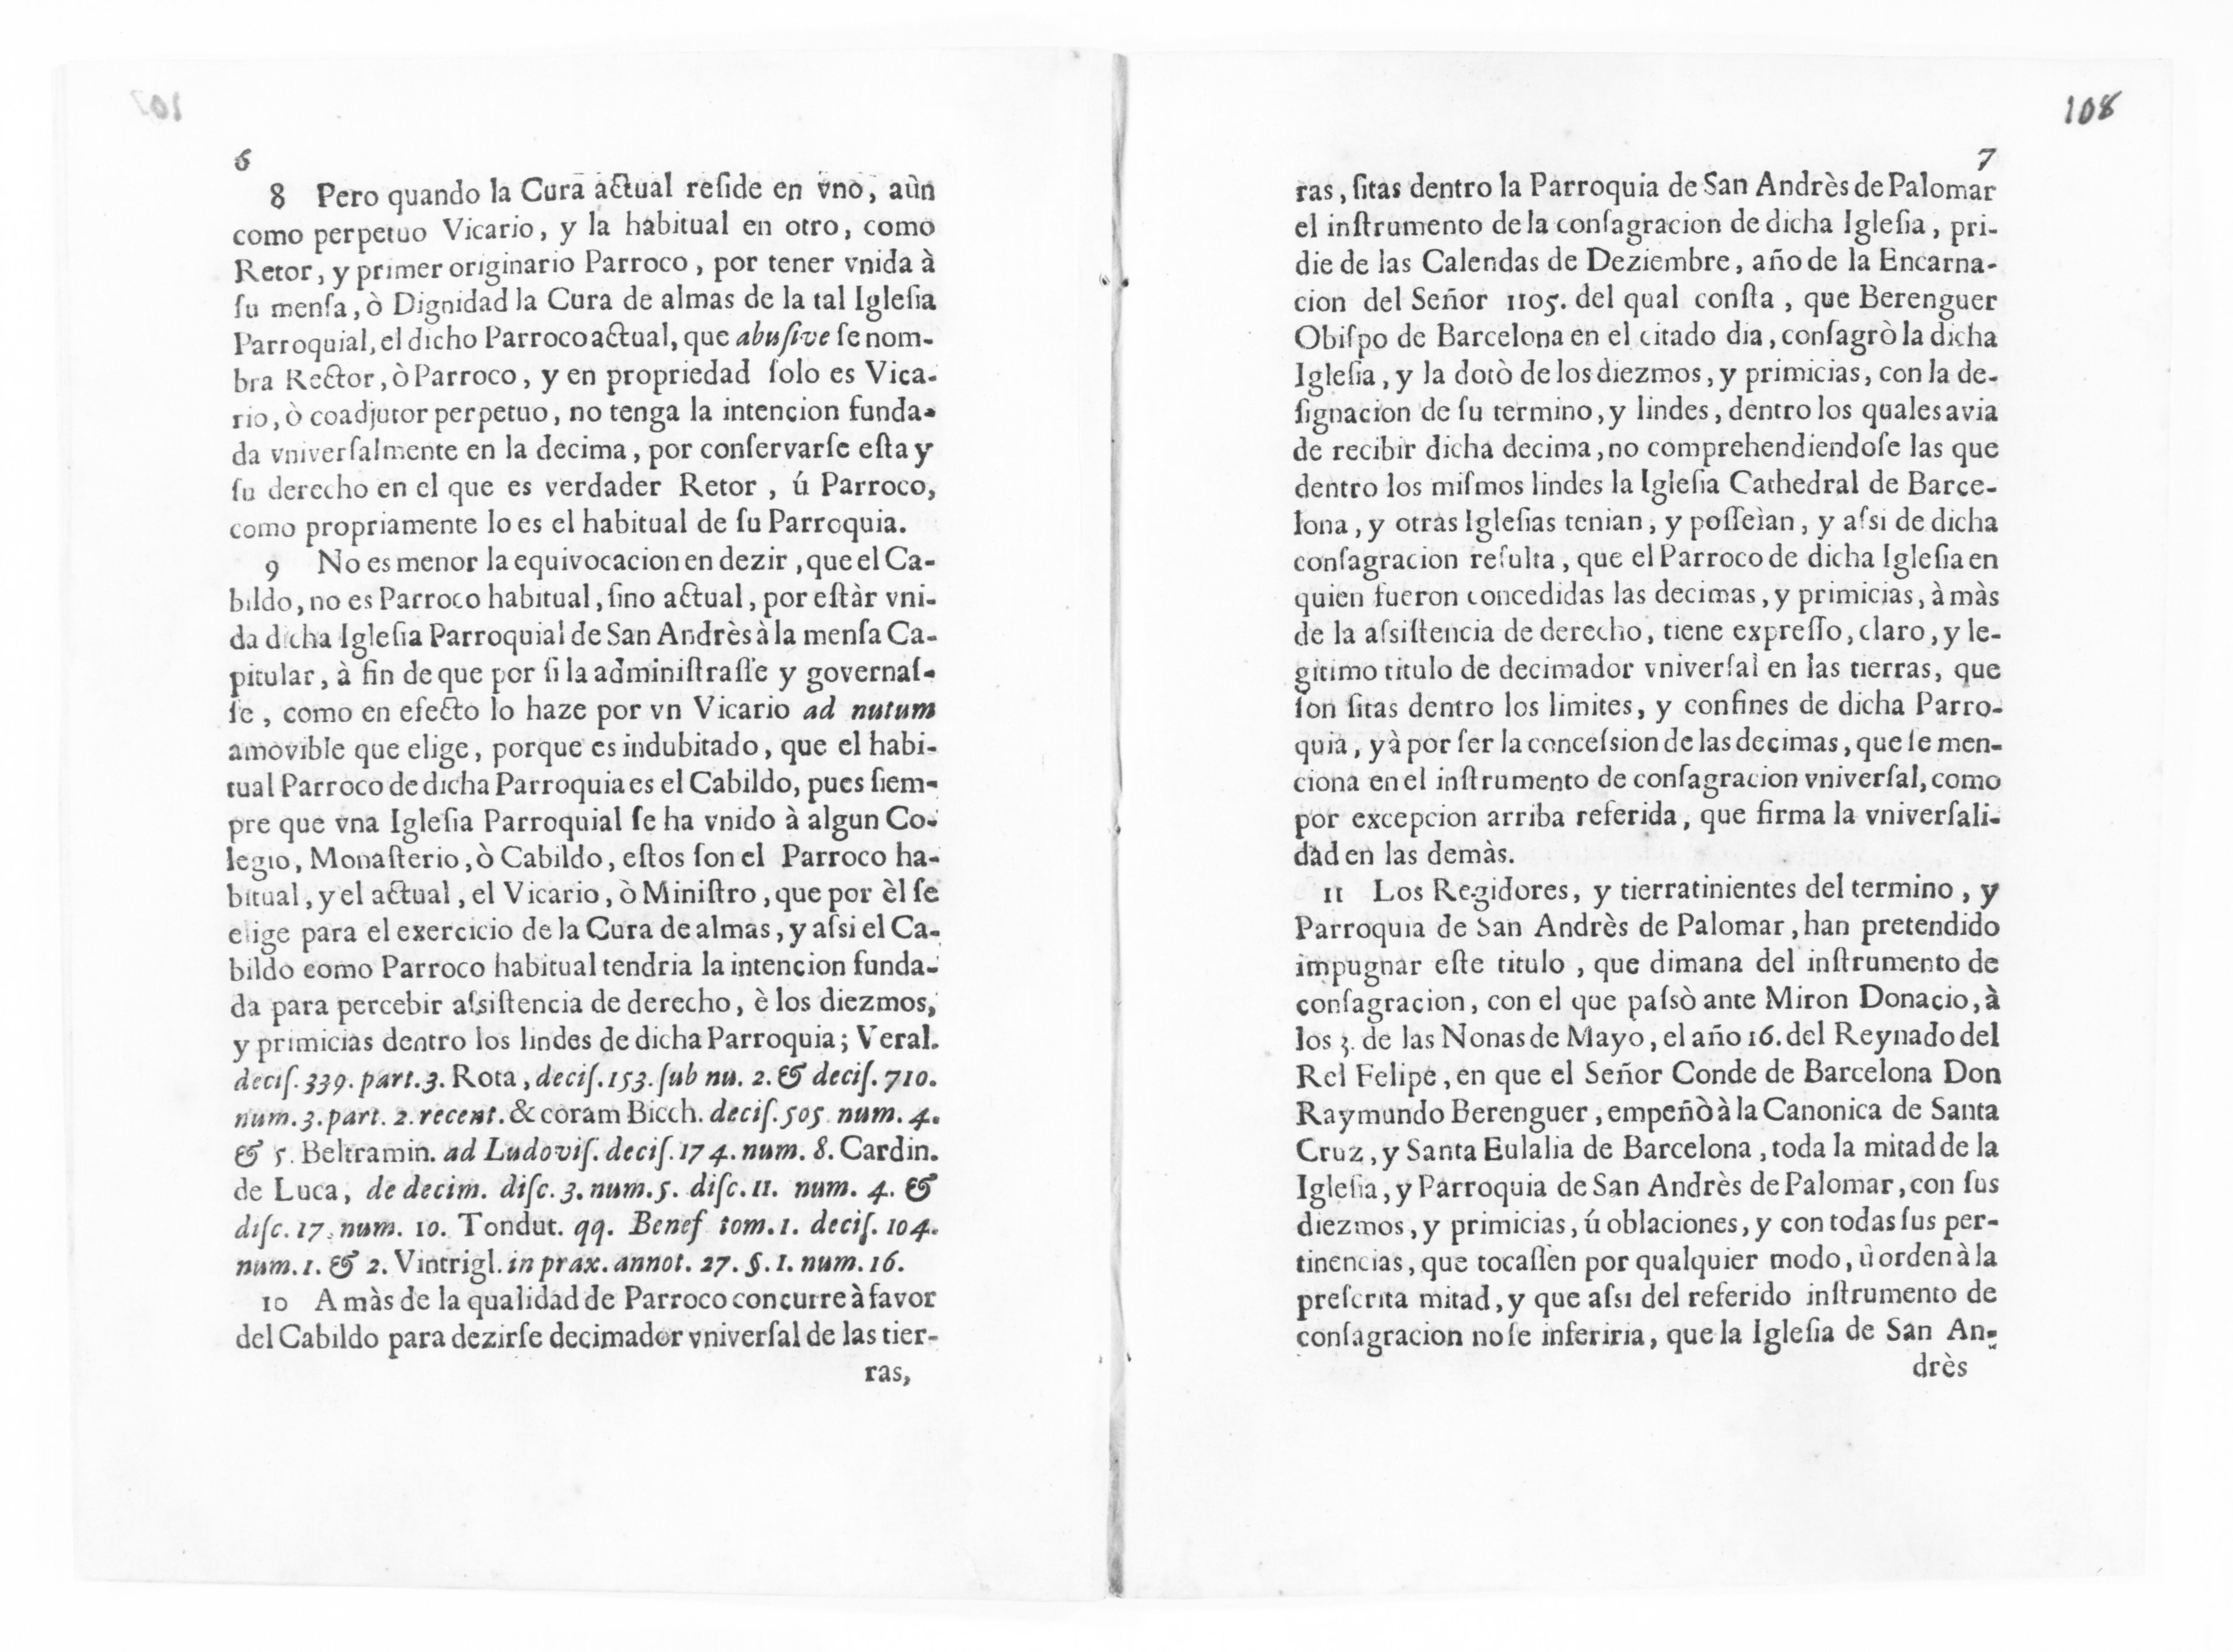 6
8 Pero quando la Cura actual reſide en vno, aùn
como perpetuo Vicario, y la habitual en otro, como
Retor, y primer originario Parroco, por tener vnida à
ſu menſa, ò Dignidad la Cura de almas de la tal Igleſia
Parroquial, el dicho Parroco actual, que abuſive ſe nom-
bra Rector, ò Parroco, y en propriedad ſolo es Vica-
rio, ò coadjutor perpetuo, no tenga la intencion funda-
da vniverſalmente en la decima, por conſervarſe eſta y
ſu derecho en el que es verdader Retor, ú Parroco,
como propriamente lo es el habitual de ſu Parroquia.
9 No es menor la equivocacion en dezir, que el Ca-
bildo, no es Parroco habitual, ſino actual, por eſtàr vni-
da dicha Igleſia Parroquial de San Andrès à la menſa Ca-
pitular, à fin de que por ſi la adminiſtraſſe y governaſ-
ſe, como en efecto lo haze por vn Vicario ad nutum
amovible que elige, porque es indubitado, que el habi-
tual Parroco de dicha Parroquia es el Cabildo, pues ſiem-
pre que vna Igleſia Parroquial ſe ha vnido à algun Co-
legio, Monaſterio, ò Cabildo, eſtos ſon el Parroco ha-
bitual, y el actual, el Vicario, ò Miniſtro, que por èl ſe
elige para el exercicio de la Cura de almas, y aſsi el Ca-
bildo como Parroco habitual tendria la intencion funda-
da para percebir aſsiſtencia de derecho, è los diezmos,
y primicias dentro los lindes de dicha Parroquia; Veral.
deciſ. 339. part. 3. Rota, deciſ. 153. ſub nu. 2. & deciſ. 710.
num. 3. part. 2. recent. & coram Bicch. deciſ. 505. num. 4.
& 5. Beltramin. ad Ludoviſ. deciſ. 174. num. 8. Cardin.
de Luca, de decim. diſc. 3. num. 5. diſc. 11. num. 4. &
diſc. 17. num. 10. Tondut. qq. Benef tom. 1. deciſ. 104.
num. 1. & 2. Vintrigl. in prax. annot. 27. §. 1. num. 16.
10 A màs de la qualidad de Parroco concurre à favor
del Cabildo para dezirſe decimador vniverſal de las tier-
ras,
108
7
ras, ſitas dentro la Parroquia de San Andrès de Palomar
el inſtrumento de la conſagracion de dicha Igleſia, pri-
die de las Calendas de Deziembre, año de la Encarna-
cion del Señor 1105. del qual conſta, que Berenguer
Obiſpo de Barcelona en el citado dia, conſagrò la dicha
Igleſia, y la dotò de los diezmos, y primicias, con la de-
ſignacion de ſu termino, y lindes, dentro los quales avia
de recibir dicha decima, no comprehendiendoſe las que
dentro los miſmos lindes la Igleſia Cathedral de Barce-
lona, y otras Igleſias tenian, y poſſeìan, y aſsi de dicha
conſagracion reſulta, que el Parroco de dicha Igleſia en
quien fueron concedidas las decimas, y primicias, à màs
de la aſsiſtencia de derecho, tiene expreſſo, claro, y le-
gitimo titulo de decimador vniverſal en las tierras, que
ſon ſitas dentro los limites, y confines de dicha Parro-
quia, yà por ſer la conceſsion de las decimas, que ſe men-
ciona en el inſtrumento de conſagracion vniverſal, como
por excepcion arriba referida, que firma la vniverſali-
dad en las demàs.
11 Los Regidores, y tierratinientes del termino, y
Parroquia de San Andrès de Palomar, han pretendido
impugnar eſte titulo, que dimana del inſtrumento de
conſagracion, con el que paſsò ante Miron Donacio, à
los 3. de las Nonas de Mayo, el año 16. del Reynado del
Rel Felipe, en que el Señor Conde de Barcelona Don
Raymundo Berenguer, empeñò à la Canonica de Santa
Cruz, y Santa Eulalia de Barcelona, toda la mitad de la
Igleſia, y Parroquia de San Andrès de Palomar, con ſus
diezmos, y primicias, ú oblaciones, y con todas ſus per-
tinencias, que tocaſſen por qualquier modo, ù orden à la
preſcrita mitad, y que aſsi del referido inſtrumento de
conſagracion no ſe inferiria, que la Igleſia de San An-
drès